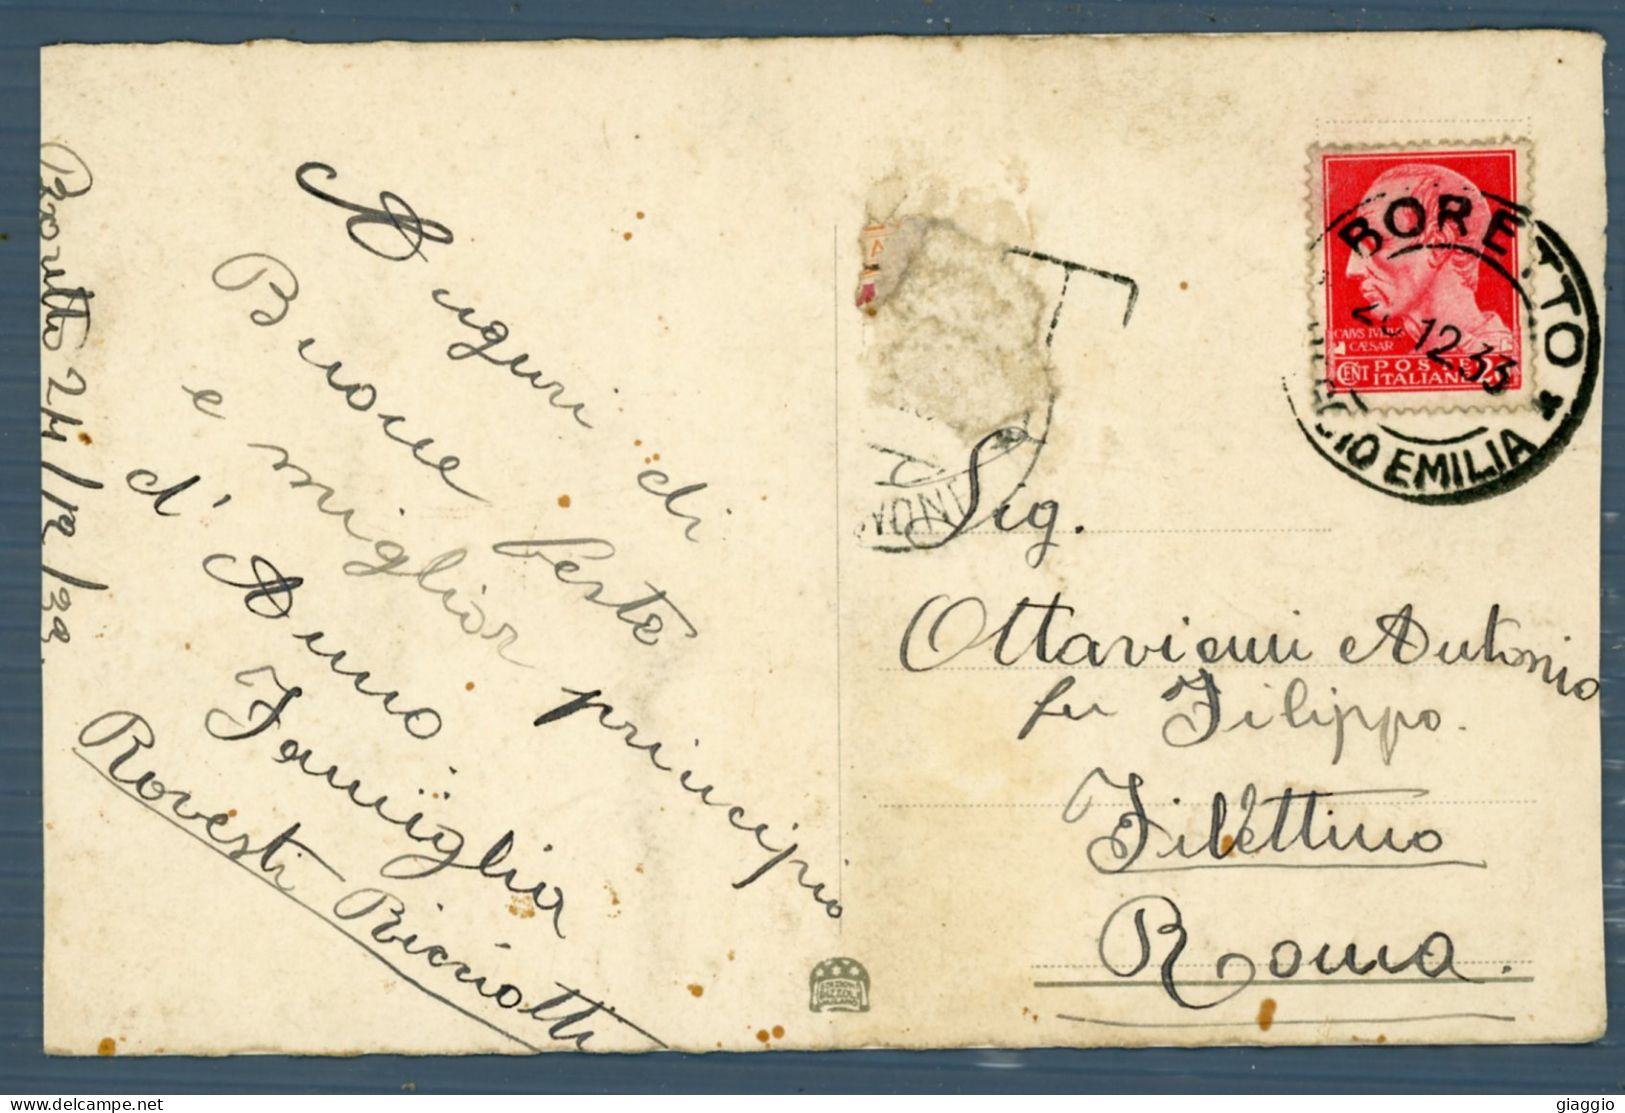 Boretto 24/12/33.
Auguri di
Buone feste
e miglior principio
d'Anno
Famiglia
Rovesti Ricciotti
BORETTO
12.33
REGGIO EMILIA
CAIVS IVLIVS
CÆSAR
CENT POSTE
ITALIANE 2
T
Sig.
Ottaviani Antonio
fu Filippo.
Filettino
Roma.
www.delcampe.net
giaggio